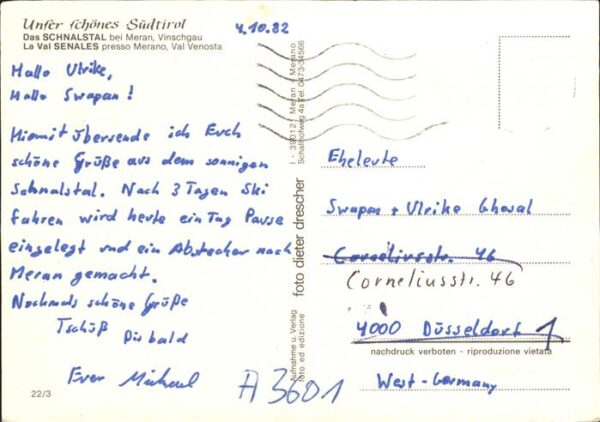 Unser schönes Südtirol
Das SCHNALSTAL bei Meran, Vinschgau
La Val SENALES presso Merano, Val Venosta
4.10.82
Hallo Ulrike,
Hallo Swapan!
Hiermit übersende ich Euch
schöne Grüße aus dem sonnigen
Schnalstal. Nach 3 Tagen Ski
fahren wird heute ein Tag Pause
eingelegt und ein Abstecher nach
Meran gemacht.
Nochmals schöne Grüße
Tschüß
Bis bald
Euer Michael
22/3
A3601
Aufnahme u. Verlag
foto ed edizione
foto dieter drescher
I - 39012 Meran - Merano
Schallhofweg 4a Tel. 0473-34566
Eheleute
Swapan + Ulrike Ghosal
Corneliusstr. 46
Corneliusstr. 46
4000 Düsseldorf 1
nachdruck verboten - riproduzione vietata
West-Germany